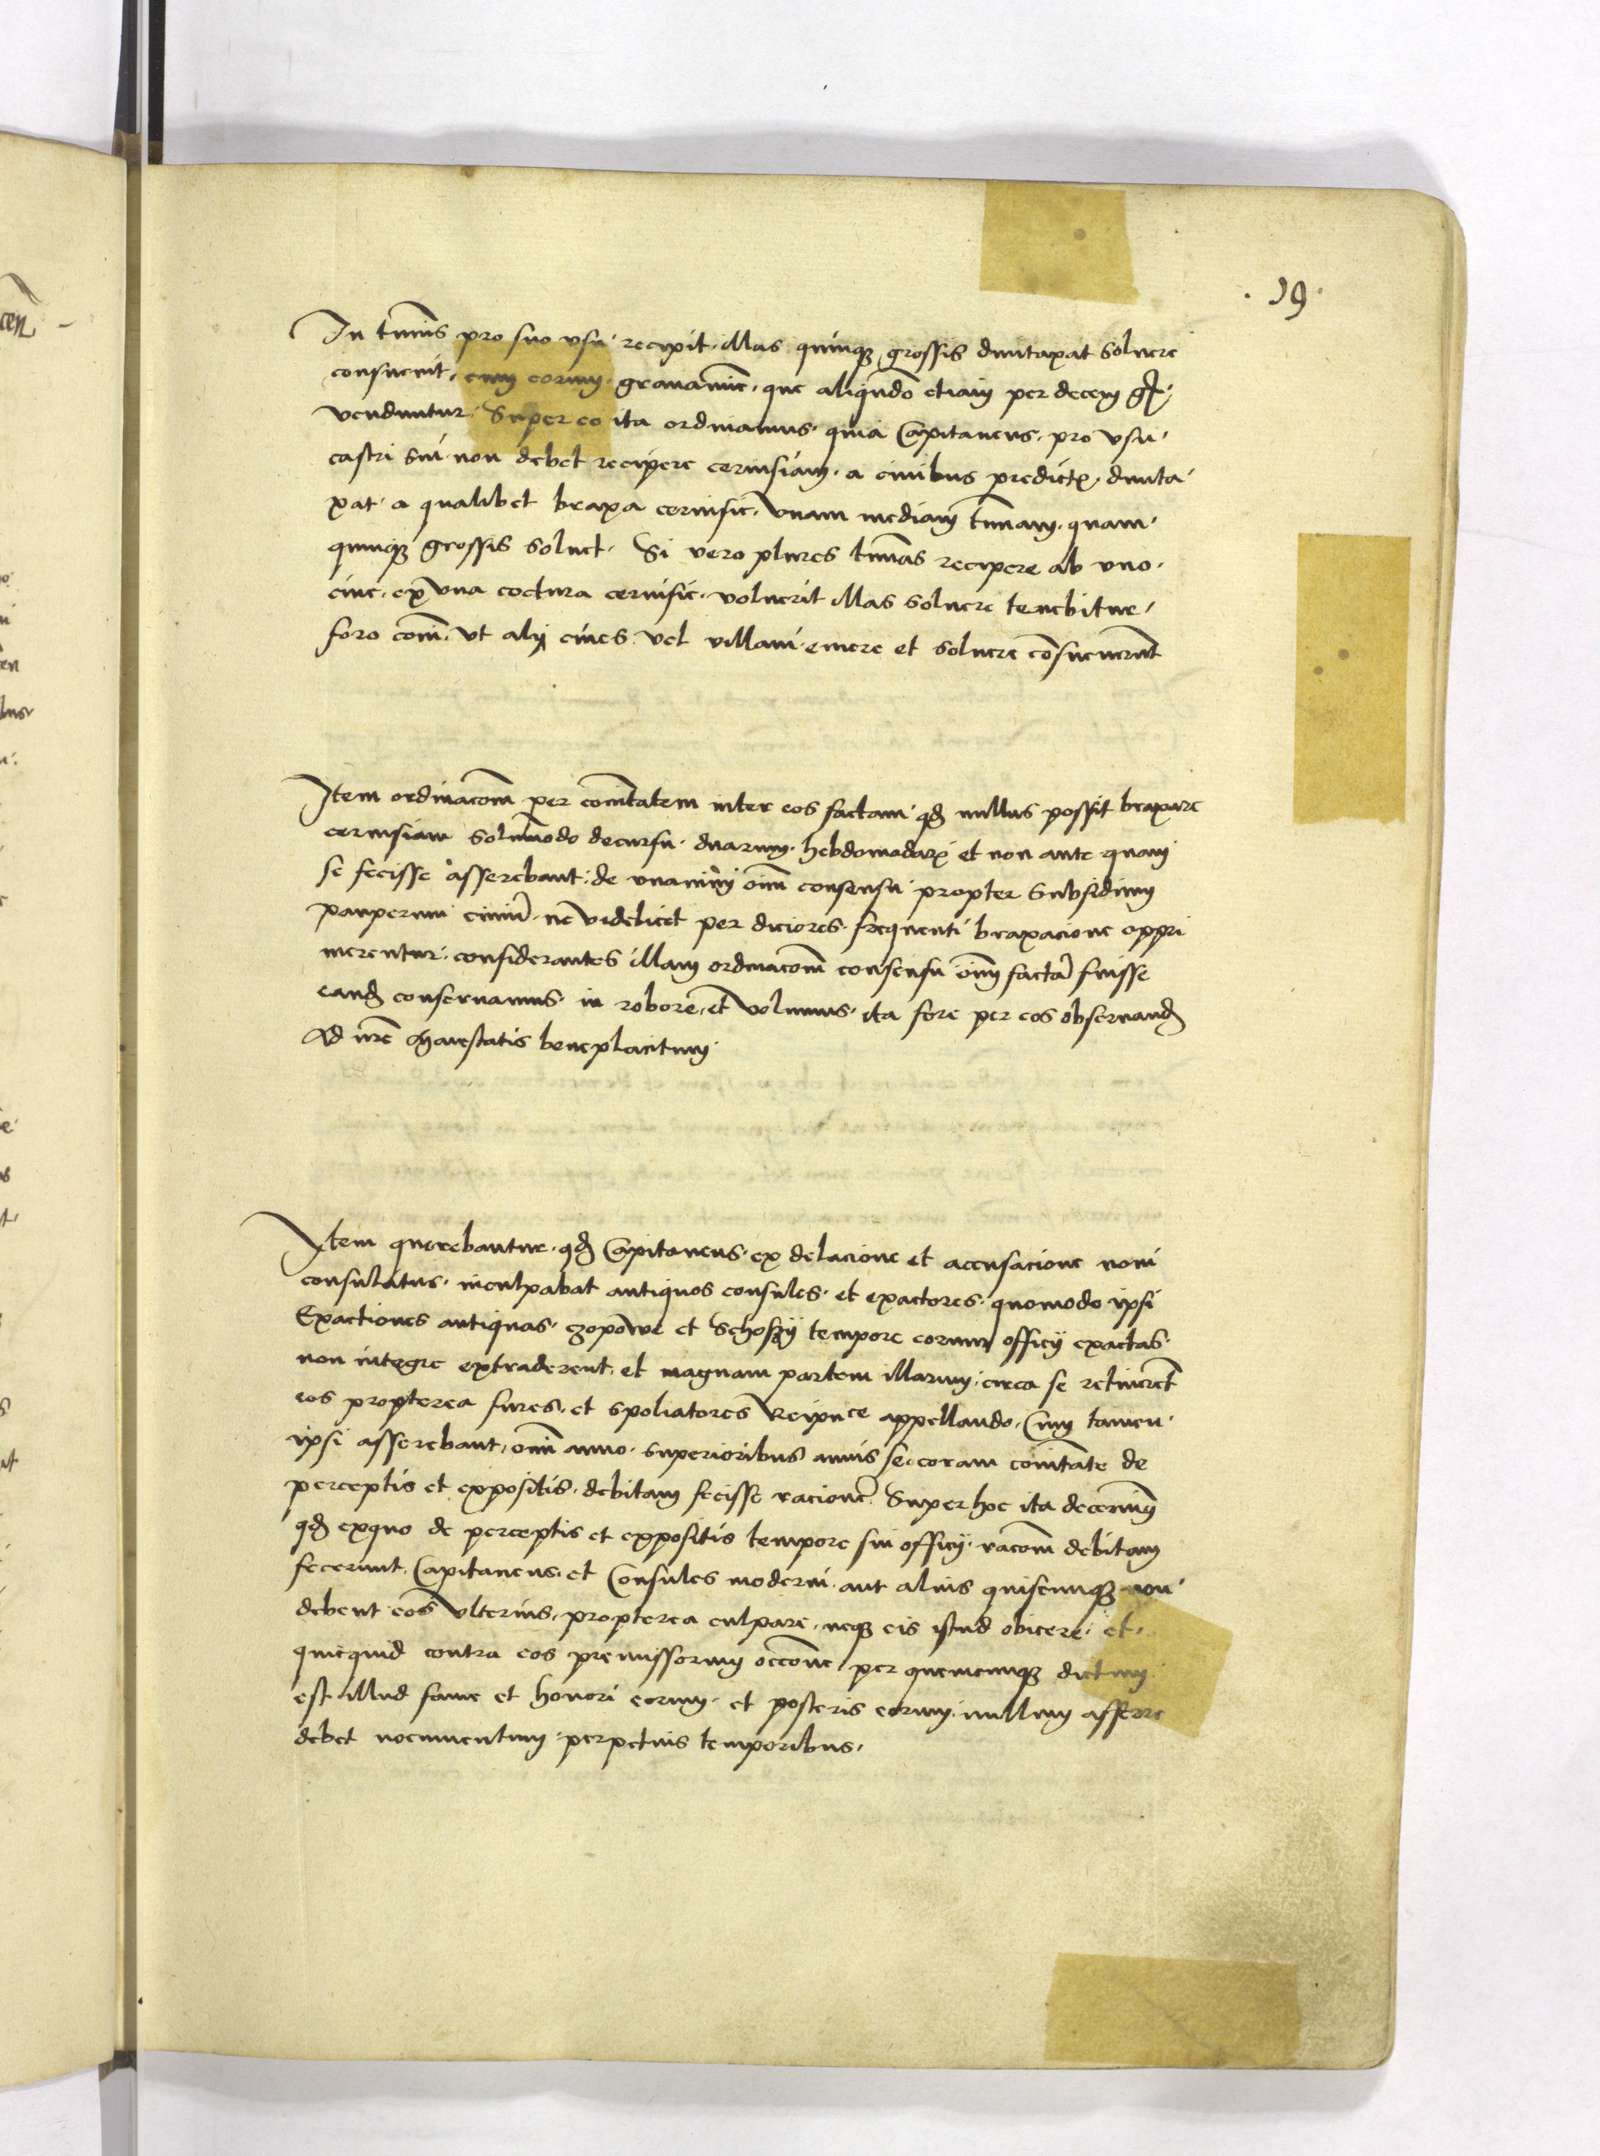 . 19 .
In tunnis pro suo usu recipit. illas quinqꝫ grossis duntaxat soluere
consueuit, cum eorum gravamine, que aliqn̄do etiam per decem gr̄.
venduntur. Super eo ita ordinamus. quia Capitaneus. pro vsu.
castri sui. non debet recipere cervisiam. a civibus predictis. dunta
xat a qualibet braxa cervisie. vnam mediam tunnam. quam.
quinqꝫ grossis soluet. Si vero plures tunnas recipere ab vno.
ciue. ex vna coctura cervisie. voluerit illas soluere tenebitur.
foro com̄i. vt alij ciues vel villani emere et soluere cōsueuerunt
Item ordinacom̄ per com̄tatem inter eos factam qđ nullus possit braxare
cervisiam solum̄modo decursu duarum. hebdomadarum et non ante quam
se fecisse asserebant. de vnanimi om̄i consensu propter subsidium
pauperum ciuiū. ne videlicet per diciores. frequenti braxacione oppri
merentur. considerantes illam ordinacom̄ consensu om̄i factā fuisse
eand̄ conservamus in robore, et volumus. ita fore per eos observand̄
Ad nr̄e Maiestatis beneplacitum
Item querebantur. qđ Capitaneus. ex delacione et accusacione noui
consulatus. inculpabat antiquos consules. et exactores. quomodo ipsi
Exactiones antiquas. czopowe et Schoszy tempore eorum officij exactas.
non integre extraderent. et magnam partem illarum. circa se retinerēt
eos propterea fures. et spoliatores Reipuce appellando. Cum tamen.
ipsi asserebant, om̄i anno. superioribus annis se coram com̄tate de
perceptis et expositis. debitam fecisse racionē. Super hoc ita decernimꝰ
qđ exquo de perceptis et expositis tempore sui officij. racom̄ debitam
fecerunt. Capitaneus. et Consules moderni aut alius quiscunqꝫ non
debent eos vlterius, propterea culpare. neqꝫ eis istud obicere. et.
quicquid contra eos premissorum occōne per quemcunqꝫ dictum
est illud fame et honori eorum. et posteris eorum. nullum afferre
debet nocumentum perpetuis temporibus.